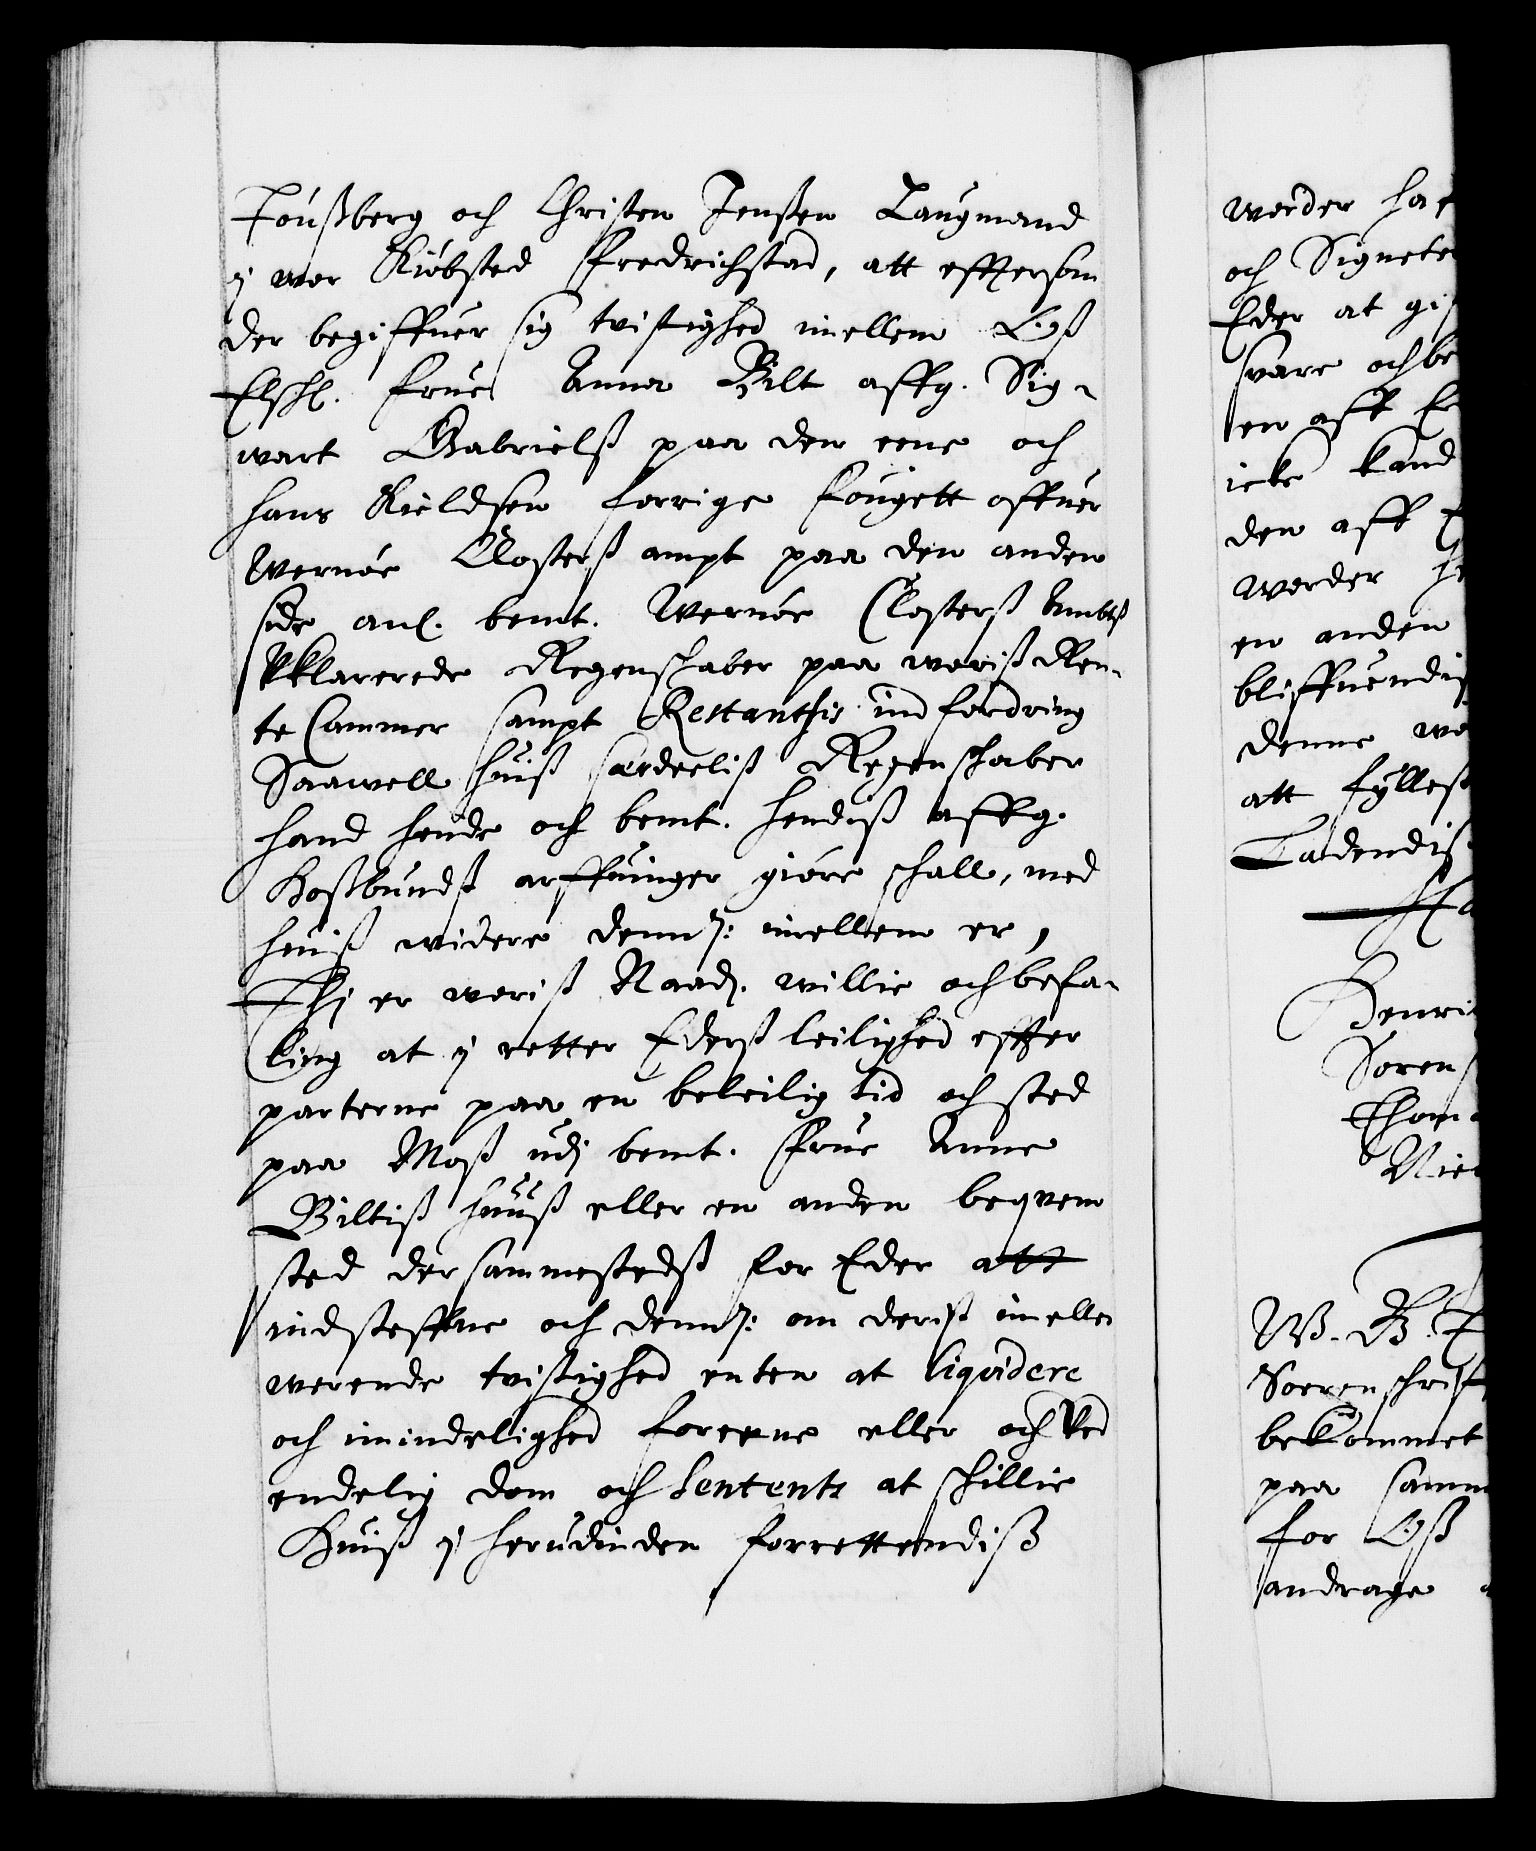 Tonßberg och Christen Jenßen Laugmand
y wor Kiøbsted Fredrichstad, att effterson
der begiffuer sig tvistighed imellem Oß
Elschl. frue Anna Bilt affg. Sig-
wart Gabrielß paa den eene och
hans Kieldsen forrige fougett offuer
Wernøe Closterß ampt paa den anden
side anl. bemt. Wernøe Closterß Ambtß
Vklarerede Regenschaber paa woriß Ren-
te Cammer sampt Restanthis indfordring
Saawell huiß særdeeliß Regenschaber
hand hende och bemt. hendiß affg.
Hoßbundß arffuinger giøre schall, med
huiß widere dennem: imellem er,
Thj er woriß Naad. willie och befa-
ling at y retter Ederß leilighed effter
parterne paa en beleilig tid och sted
paa Moß udj bemt. frue Anne
Biltiß huuß eller en anden beqvem
sted dersammestedß for Eder att
indsteffne och dennem: om deriß imellem
werende tvistighed enten at liqvidere
och i mindelighed foreene eller och ved
endelig dom och Sentents at schillie
Huiß y herudinden forrettendiß
worder
och Signete
Eder at gif
svare och be
en aff
icke kand
den aff
worder
en anden
bliffuendiß
denne wo
att fyllest
Ladendiß
Henri
Søren
Thom
Niel
W. G. T
Søren schrif
bekommet
paa samm
for Oß
andrage